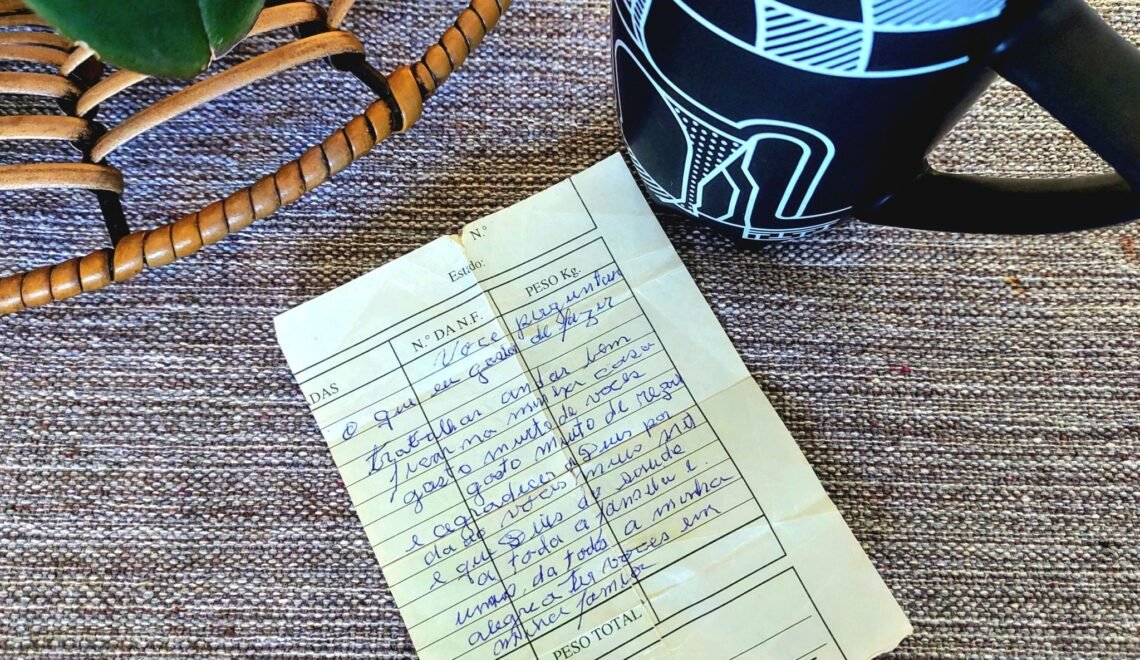 N.º
Estado:
PESO Kg.
N.º DA N.F.
DAS
Voce preguntan
o que eu gosto de fazer
trabalhar andar bem
ficar na minha casa
gosto muito de voces
gosto muito de rezar
e agradecer a Deus por
e que Deus de saude
a toda a familia e
da toda a minha
alegria ter voces em
minha familia
PESO TOTAL